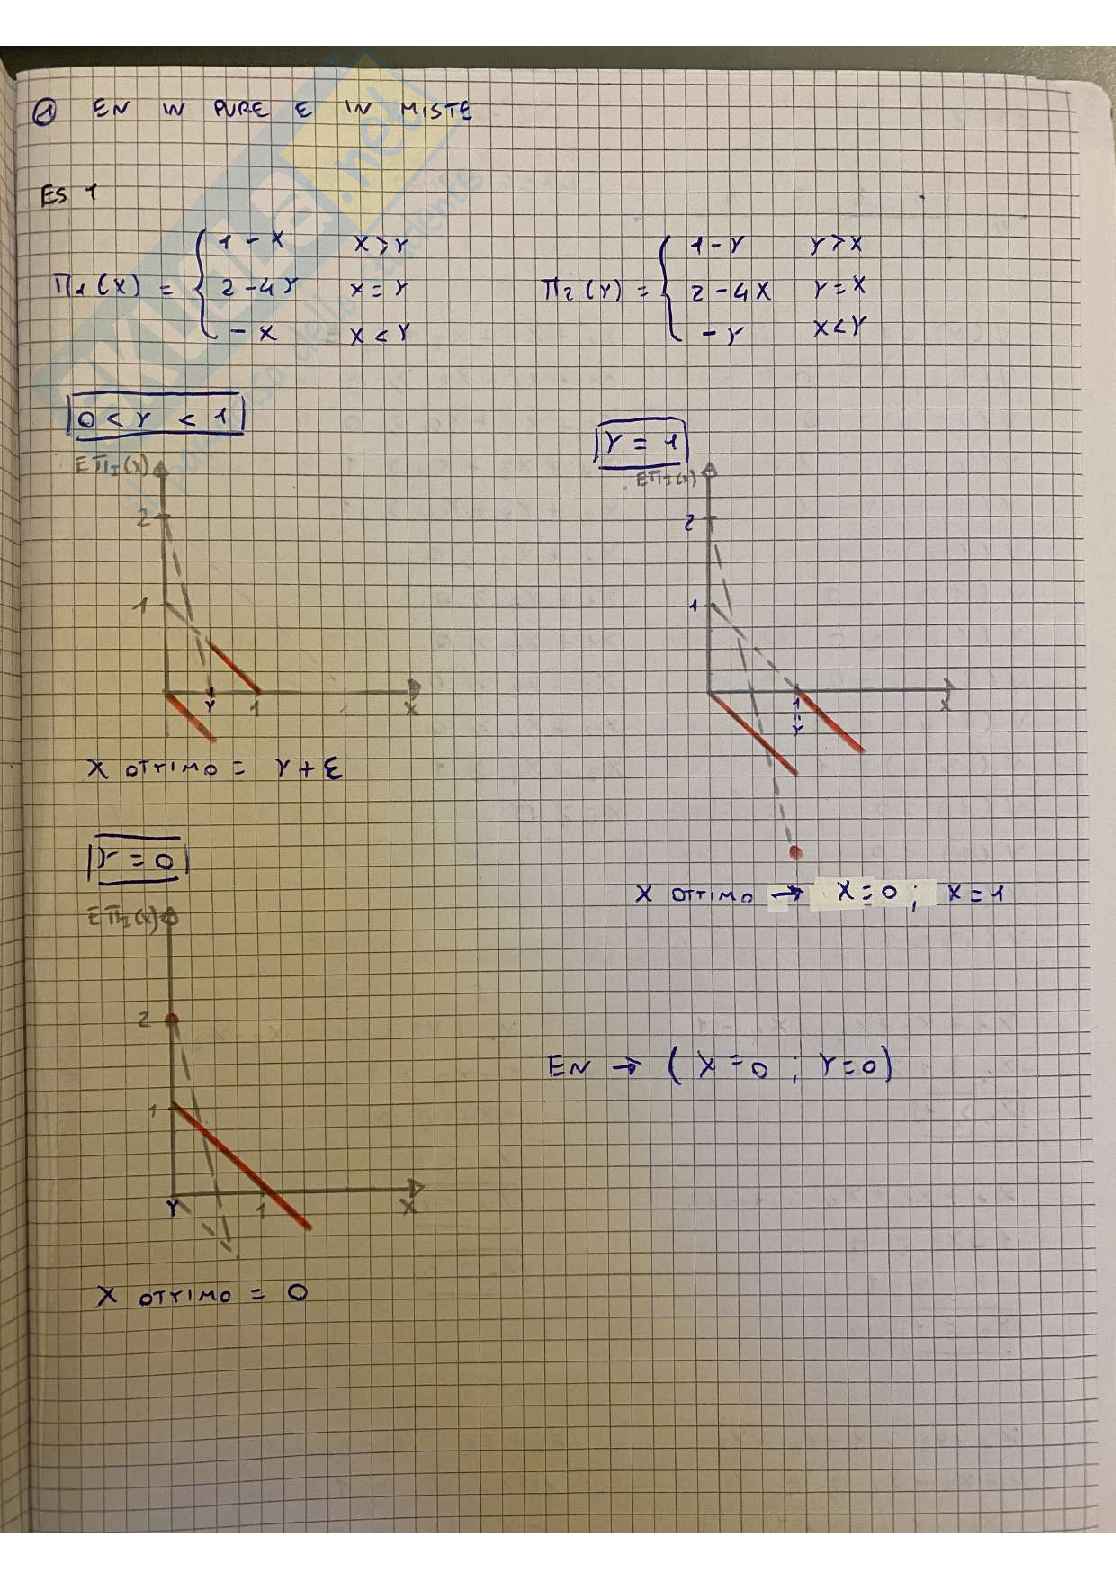 ① EN IN PURE E IN MISTE
ES 1
Π1 (X) = { 1 - X X > Y
2 - 4Y X = Y
- X X < Y
Π2 (Y) = { 1 - Y Y > X
2 - 4X Y = X
- Y X < Y
0 < Y < 1
EΠI(X)
2
1
Y 1 X
X OTTIMO = Y + Ɛ
Y = 1
EΠI(X)
2
1
1 X
=
Y
X OTTIMO → X = 0 ; X = 1
Y = 0
EΠI(X)
2
1
Y 1 X
X OTTIMO = 0
EN → ( X = 0 ; Y = 0 )